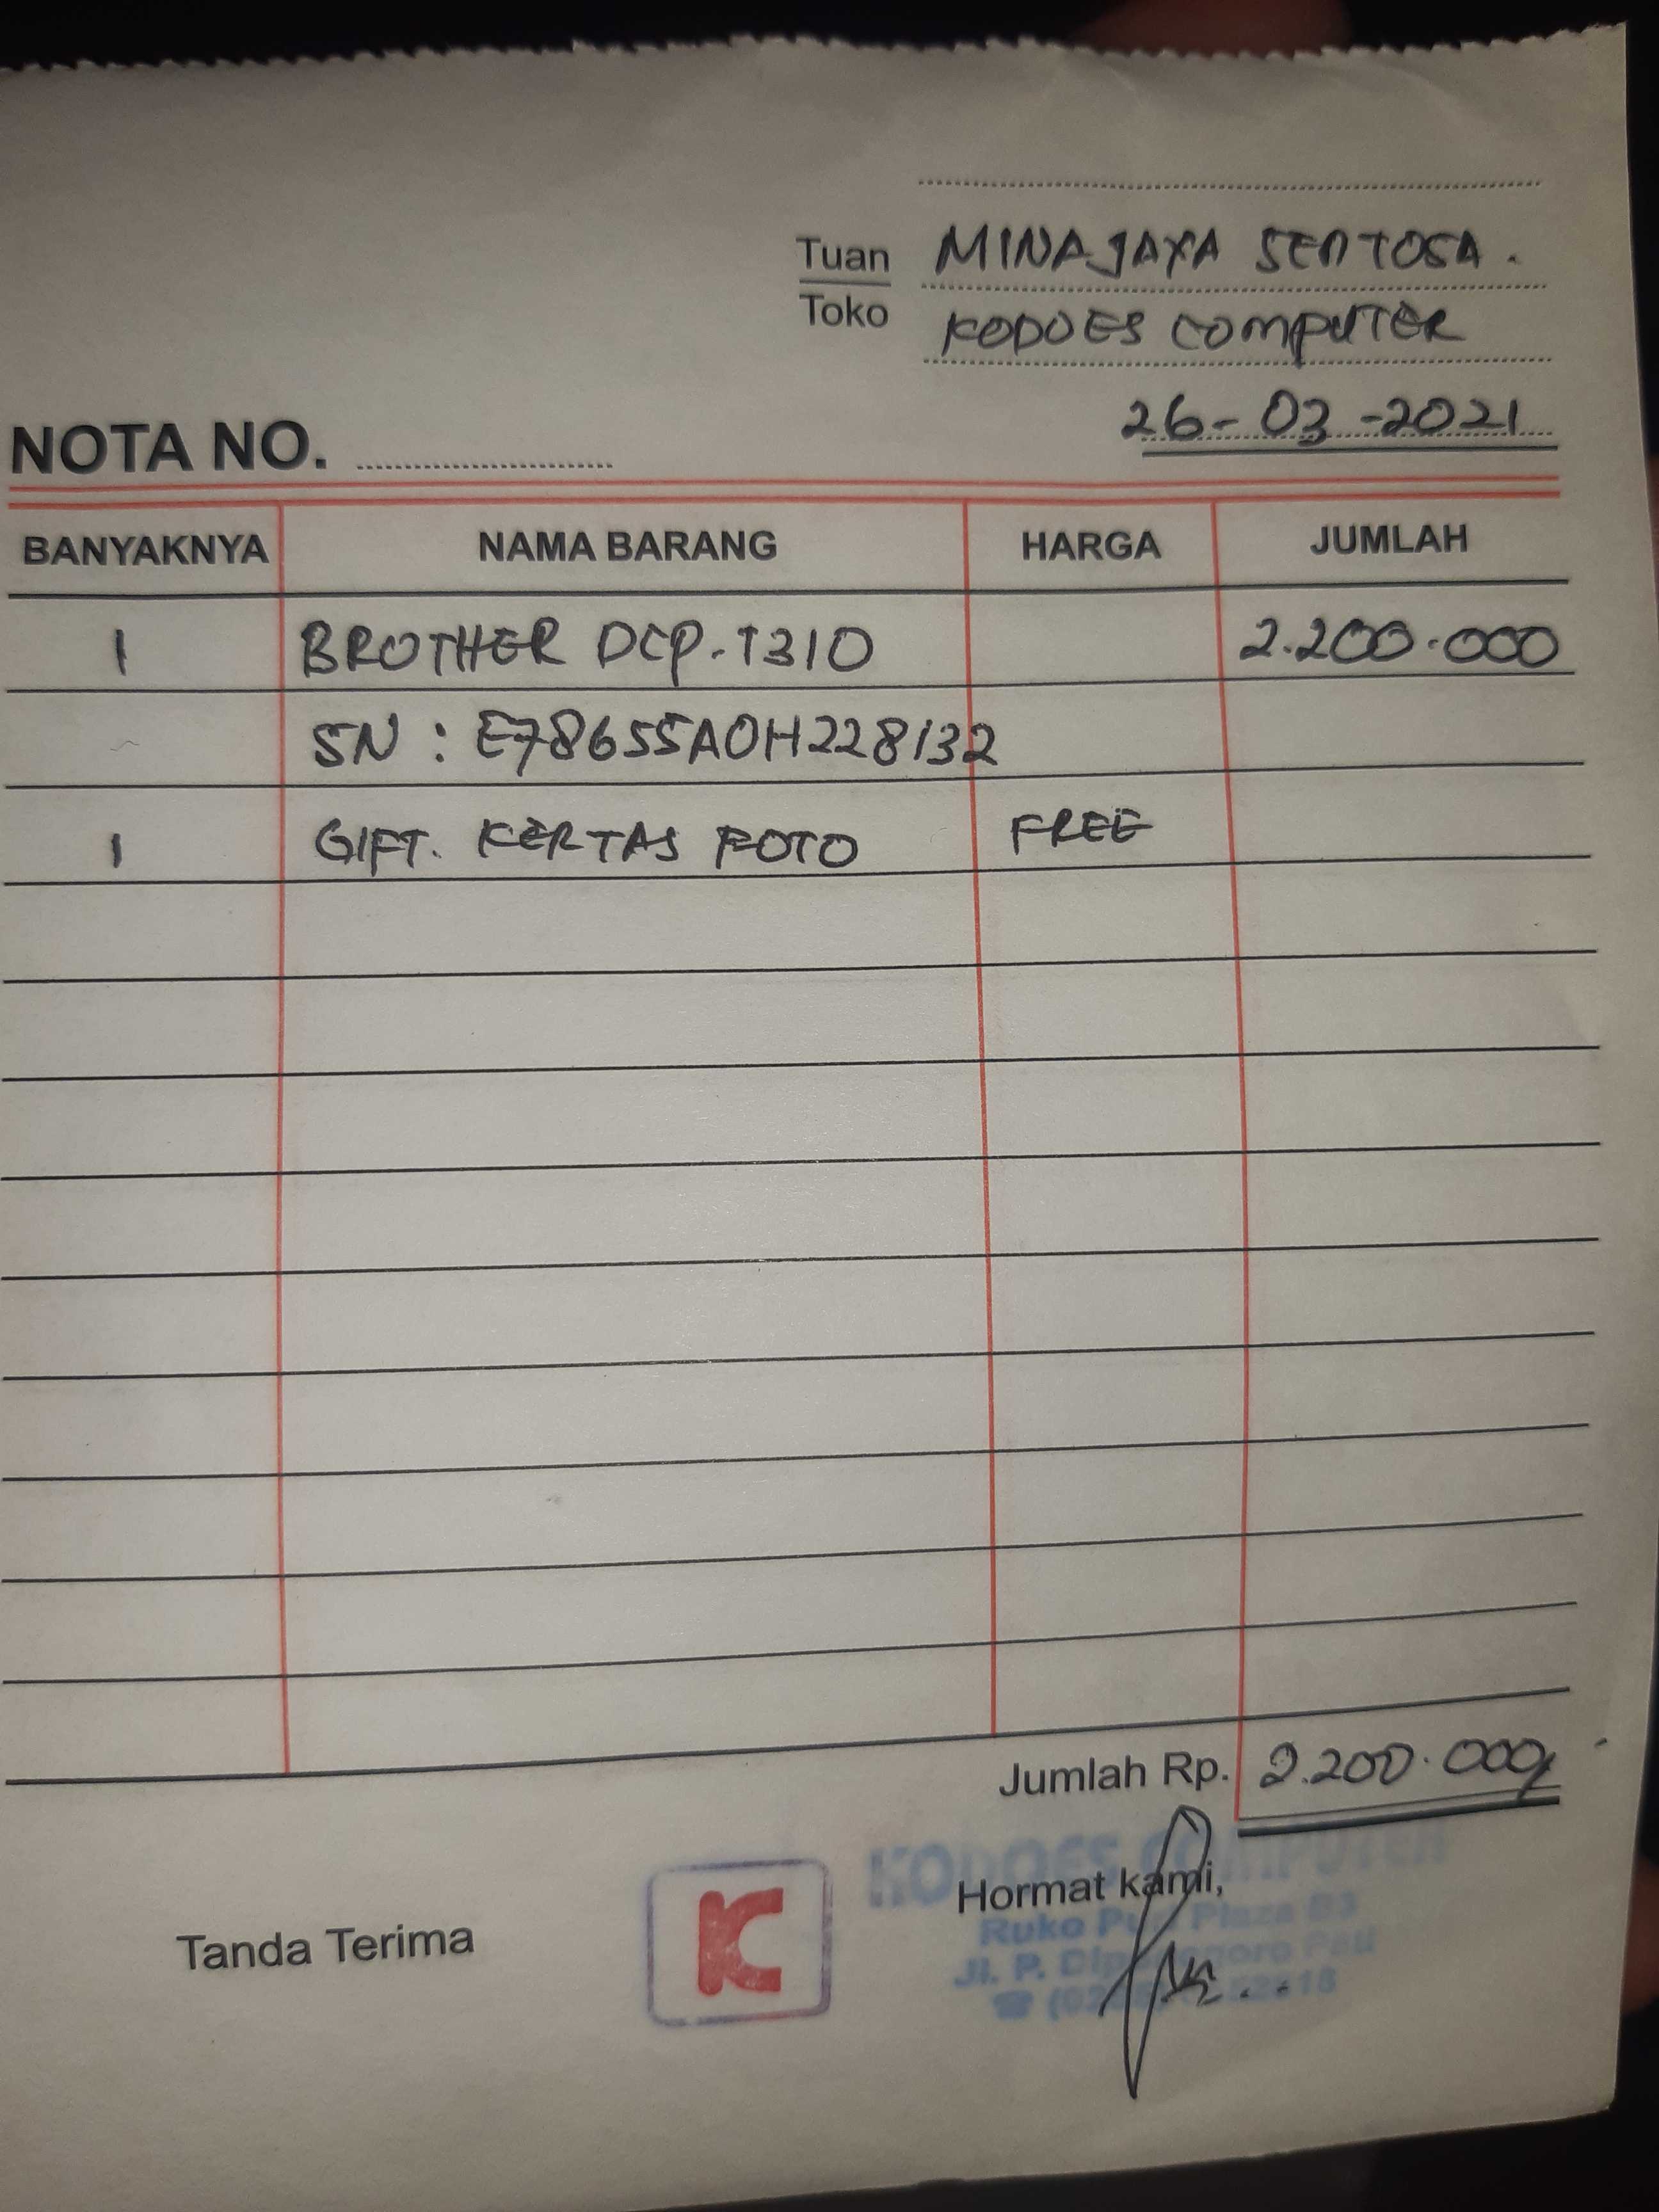 Tuan MINAJAYA SENTOSA.
Toko KODOES COMPUTER
26-03-2021
NOTA NO.
BANYAKNYA NAMA BARANG HARGA JUMLAH
1 BROTHER DCP-T310 2.200.000
SN : E78655A0H228132
1 GIFT. KERTAS FOTO FREE
Jumlah Rp. 2.200.000
KODOES COMPUTER
Tanda Terima K Hormat kami,
Ruko Puri Plaza B3
Jl. P. Diponegoro Pati